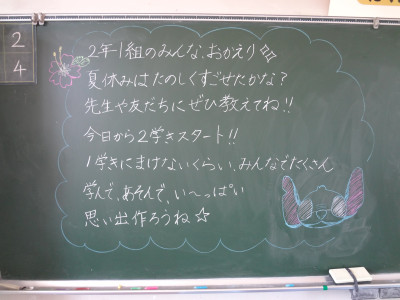 2
4
2年1組のみんな、おかえり✨
夏休みはたのしくすごせたかな?
先生や友だちにぜひ教えてね!!
今日から2学きスタート!!
1学きにまけないくらい、みんなでたくさん
学んで、あそんで、い〜っぱい
思い出作ろうね☆